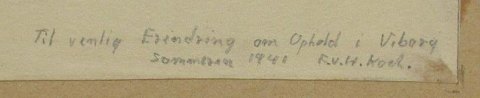 Til venlig Erindring om Ophold i Viborg
Sommeren 1941 F.v.H. Koch.